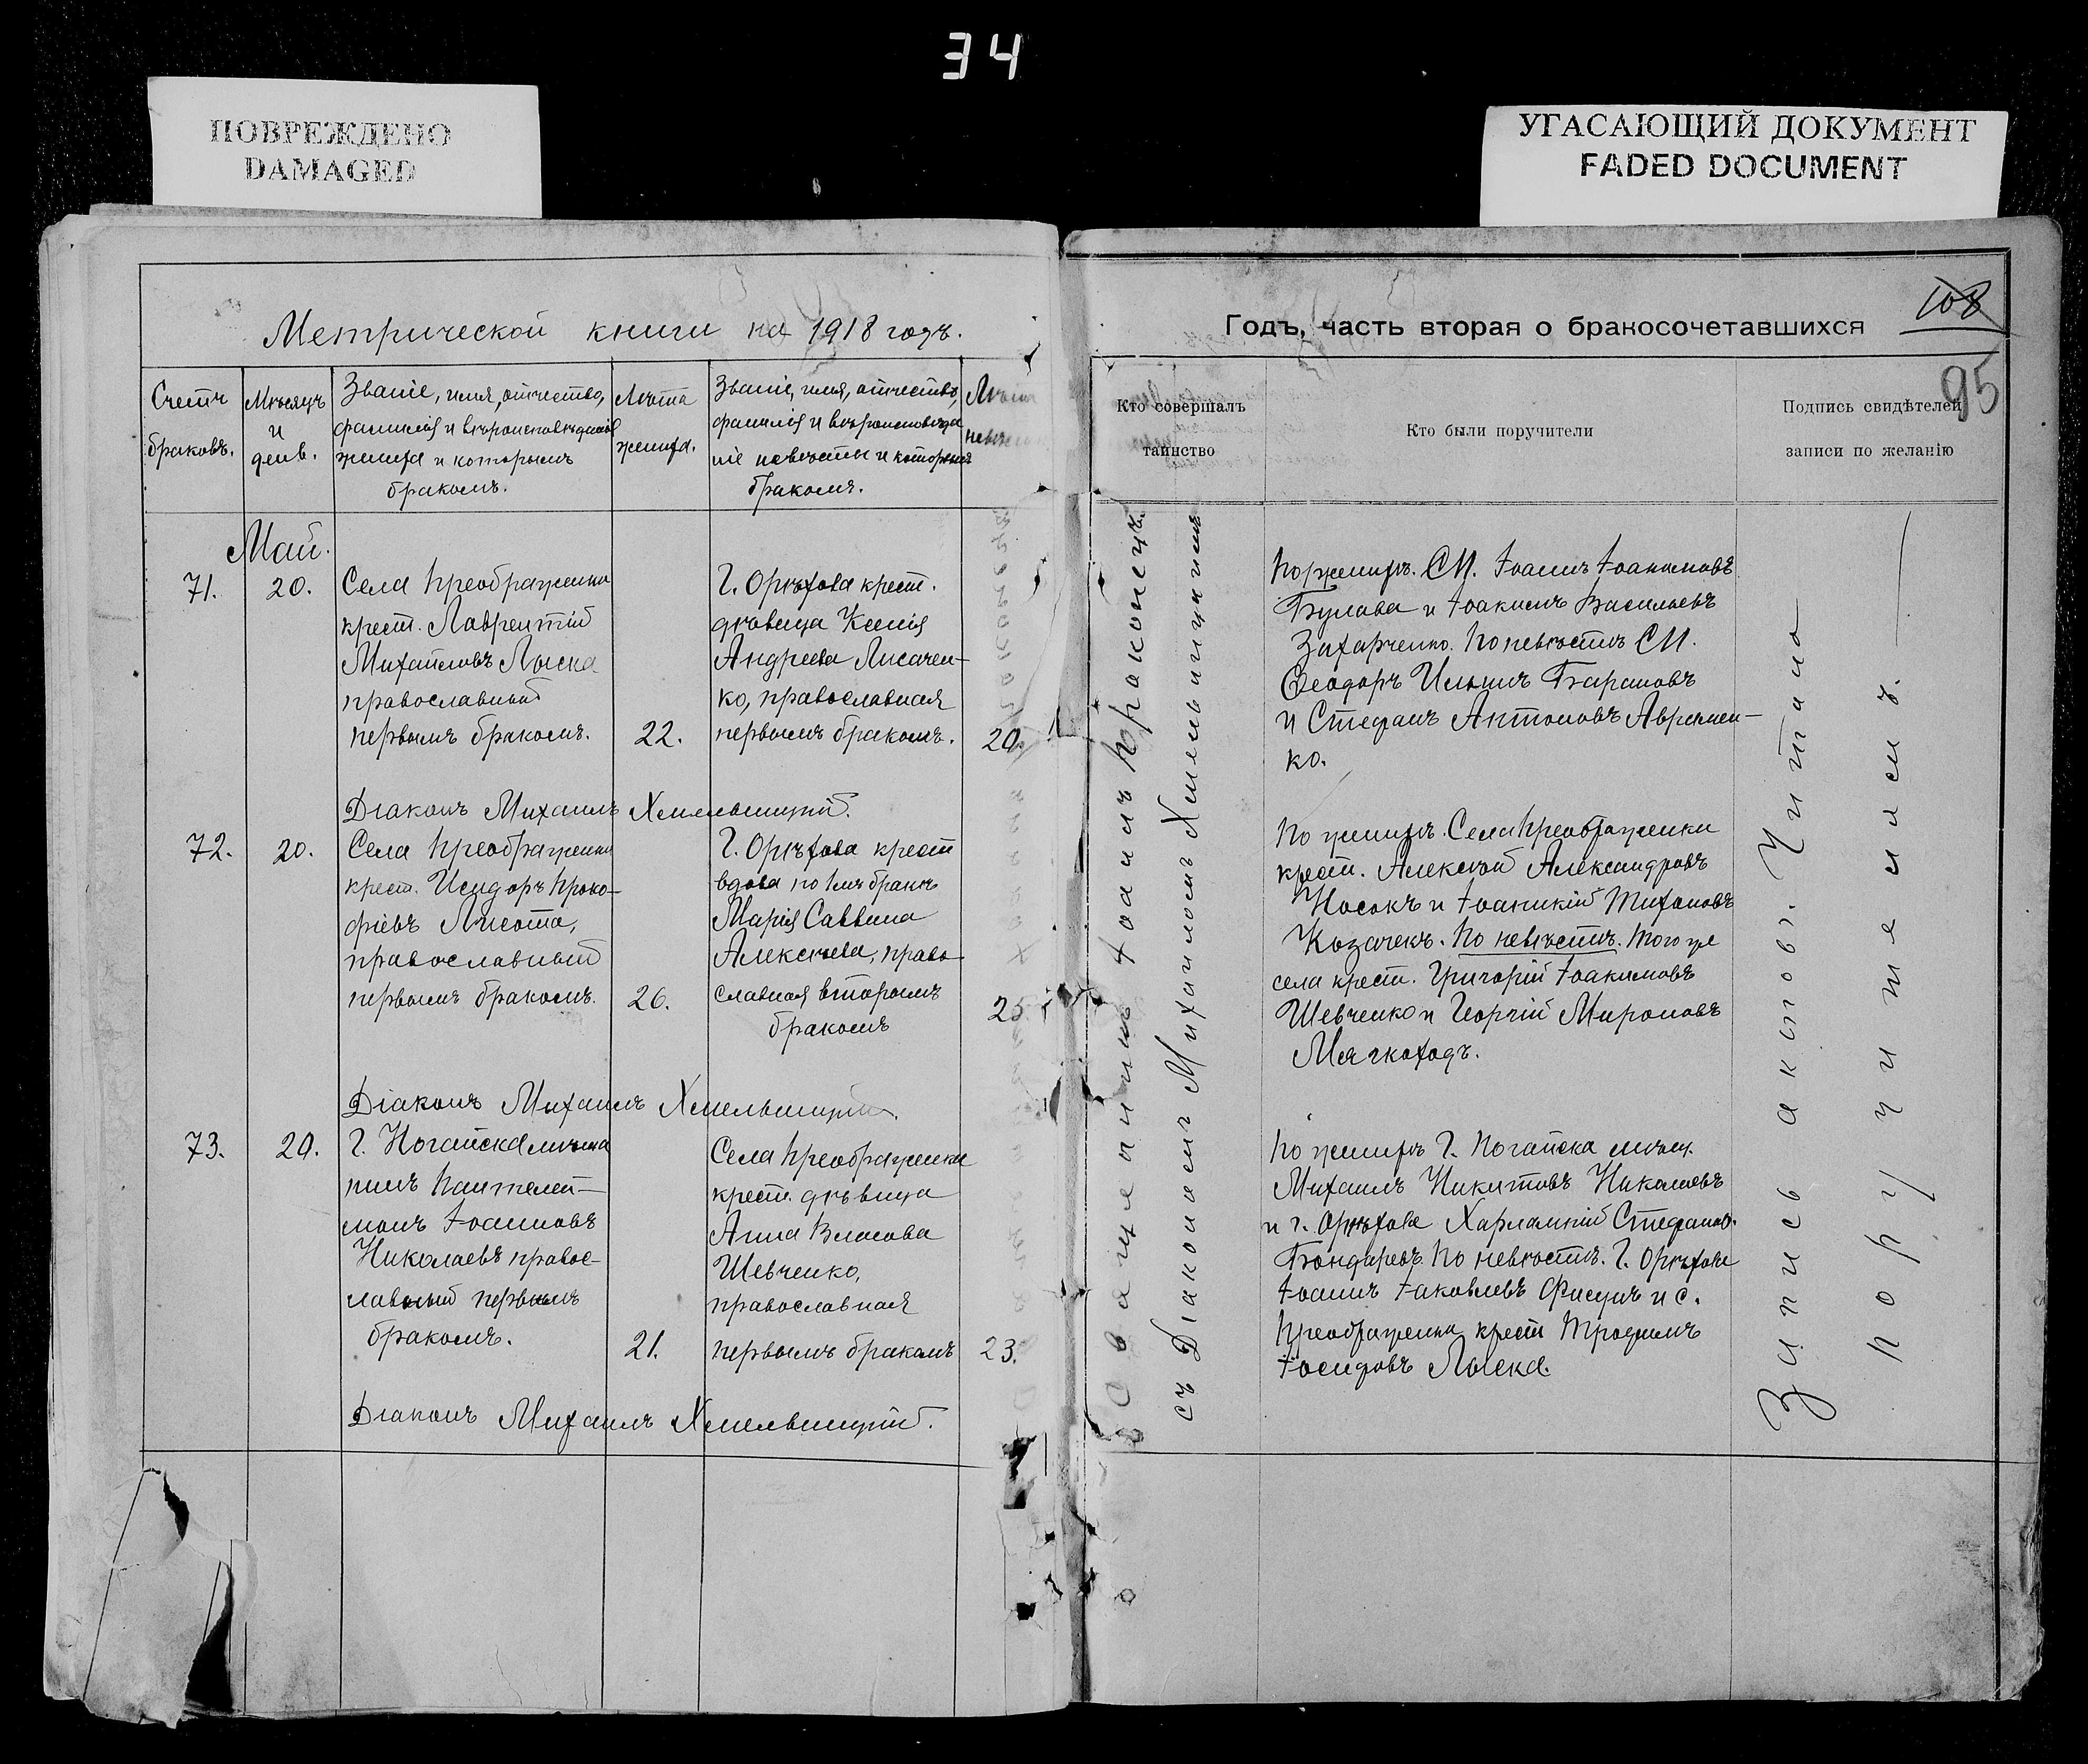 34
ПОВРЕЖДЕНО
DAMAGED
УГАСАЮЩИЙ ДОКУМЕНТ
FADED DOCUMENT
Метрической книги на 1918 годъ.
Счетъ
браковъ.
Мѣсяцъ
и
день.
Званіе, имя, отчество,
фамилія и вѣроисповѣданіе
жениха и которымъ
бракомъ.
Лѣта
жениха.
Званіе, имя, отчество,
фамилія и вѣроисповѣда
ніе невѣсты и которымъ
бракомъ.
Лѣта
невѣ
Май.
71.
20.
Села Преображенки
крест. Лаврентій
Михаиловъ Лыска
православный
первымъ бракомъ.
22.
Г. Орѣхова крест.
дѣвица Ксенія
Андреева Лисачен-
ко, православная
первымъ бракомъ.
20.
Діаконъ Михаилъ Хмельницкій.
72.
20.
Села Преображенки
крест. Исидоръ Проко-
фіевъ Лисота,
православный
первымъ бракомъ.
26.
Г. Орѣхова крест
вдова по 1мъ бракѣ
Марія Саввина
Алексѣева, право
славная вторымъ
бракомъ
25
Діаконъ Михаилъ Хмельницкій.
73.
20.
Г. Ногайска мѣща
нинъ Пантелей-
монъ Іоанновъ
Николаевъ правос-
лавный первымъ
бракомъ.
21.
Села Преображенки
крест. дѣвица
Анна Власова
Шевченко,
православная
первымъ бракомъ
23.
Діаконъ Михаилъ Хмельницкій.
108
Годъ, часть вторая о бракосочетавшихся
95
Кто совершалъ
таинство
Кто были поручители
Подпись свидѣтелей
записи по желанію
Священникъ Іоаннъ Краконецъ.
съ Діакономъ Михаиломъ Хмельницкимъ
По женихѣ. СП. Іоаннъ Іоакимовъ
Булава и Іоакимъ Васильевъ
Захарченко. По невѣстѣ СП.
Ѳеодоръ Ильинъ Барановъ
и Стефанъ Антоновъ Авремен-
ко.
По женихѣ. Села Преображенки
крест. Алексѣй Александровъ
Носокъ и Іоанникій Тихоновъ
Козачекъ. По невѣстѣ. Того же
села крест. Григорій Іоакимовъ
Шевченко и Георгій Мироновъ
Мягкоходъ.
По женихѣ Г. Ногайска мѣщ.
Михаилъ Никитовъ Николаевъ
и г. Орѣхова Харлампій Стефанов.
Бондаревъ. По невѣстѣ. Г. Орѣхова
Іоаннъ Іаковлевъ Фисунъ и с.
Преображенки крест Трофимъ
Іосифовъ Лыска.
Запись актовъ. Читана
поручителямъ.